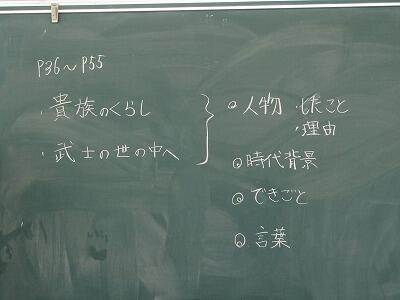 P36~P55
・貴族のくらし
・武士の世の中へ
◎人物 ・したこと
・理由
◎時代背景
◎できごと
◎言葉